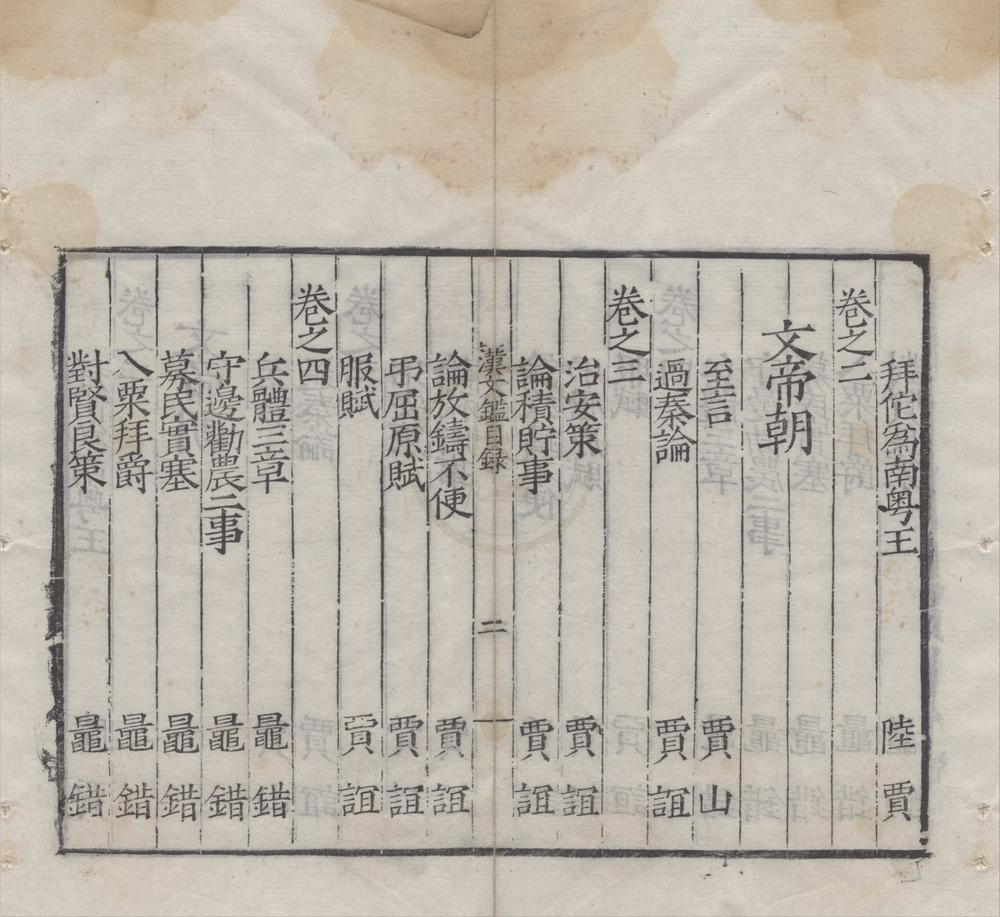 拜佗為南粤王 陸賈
卷之二
文帝朝
至言 賈山
過秦論 賈誼
卷之三
治安策 賈誼
論積貯事 賈誼
漢文鑑目録 二
論放鑄不便 賈誼
弔屈原賦 賈誼
服賦 賈誼
卷之四
兵體三章 鼂錯
守邊勸農二事 鼂錯
募民實塞 鼂錯
入粟拜爵 鼂錯
對賢良策 鼂錯